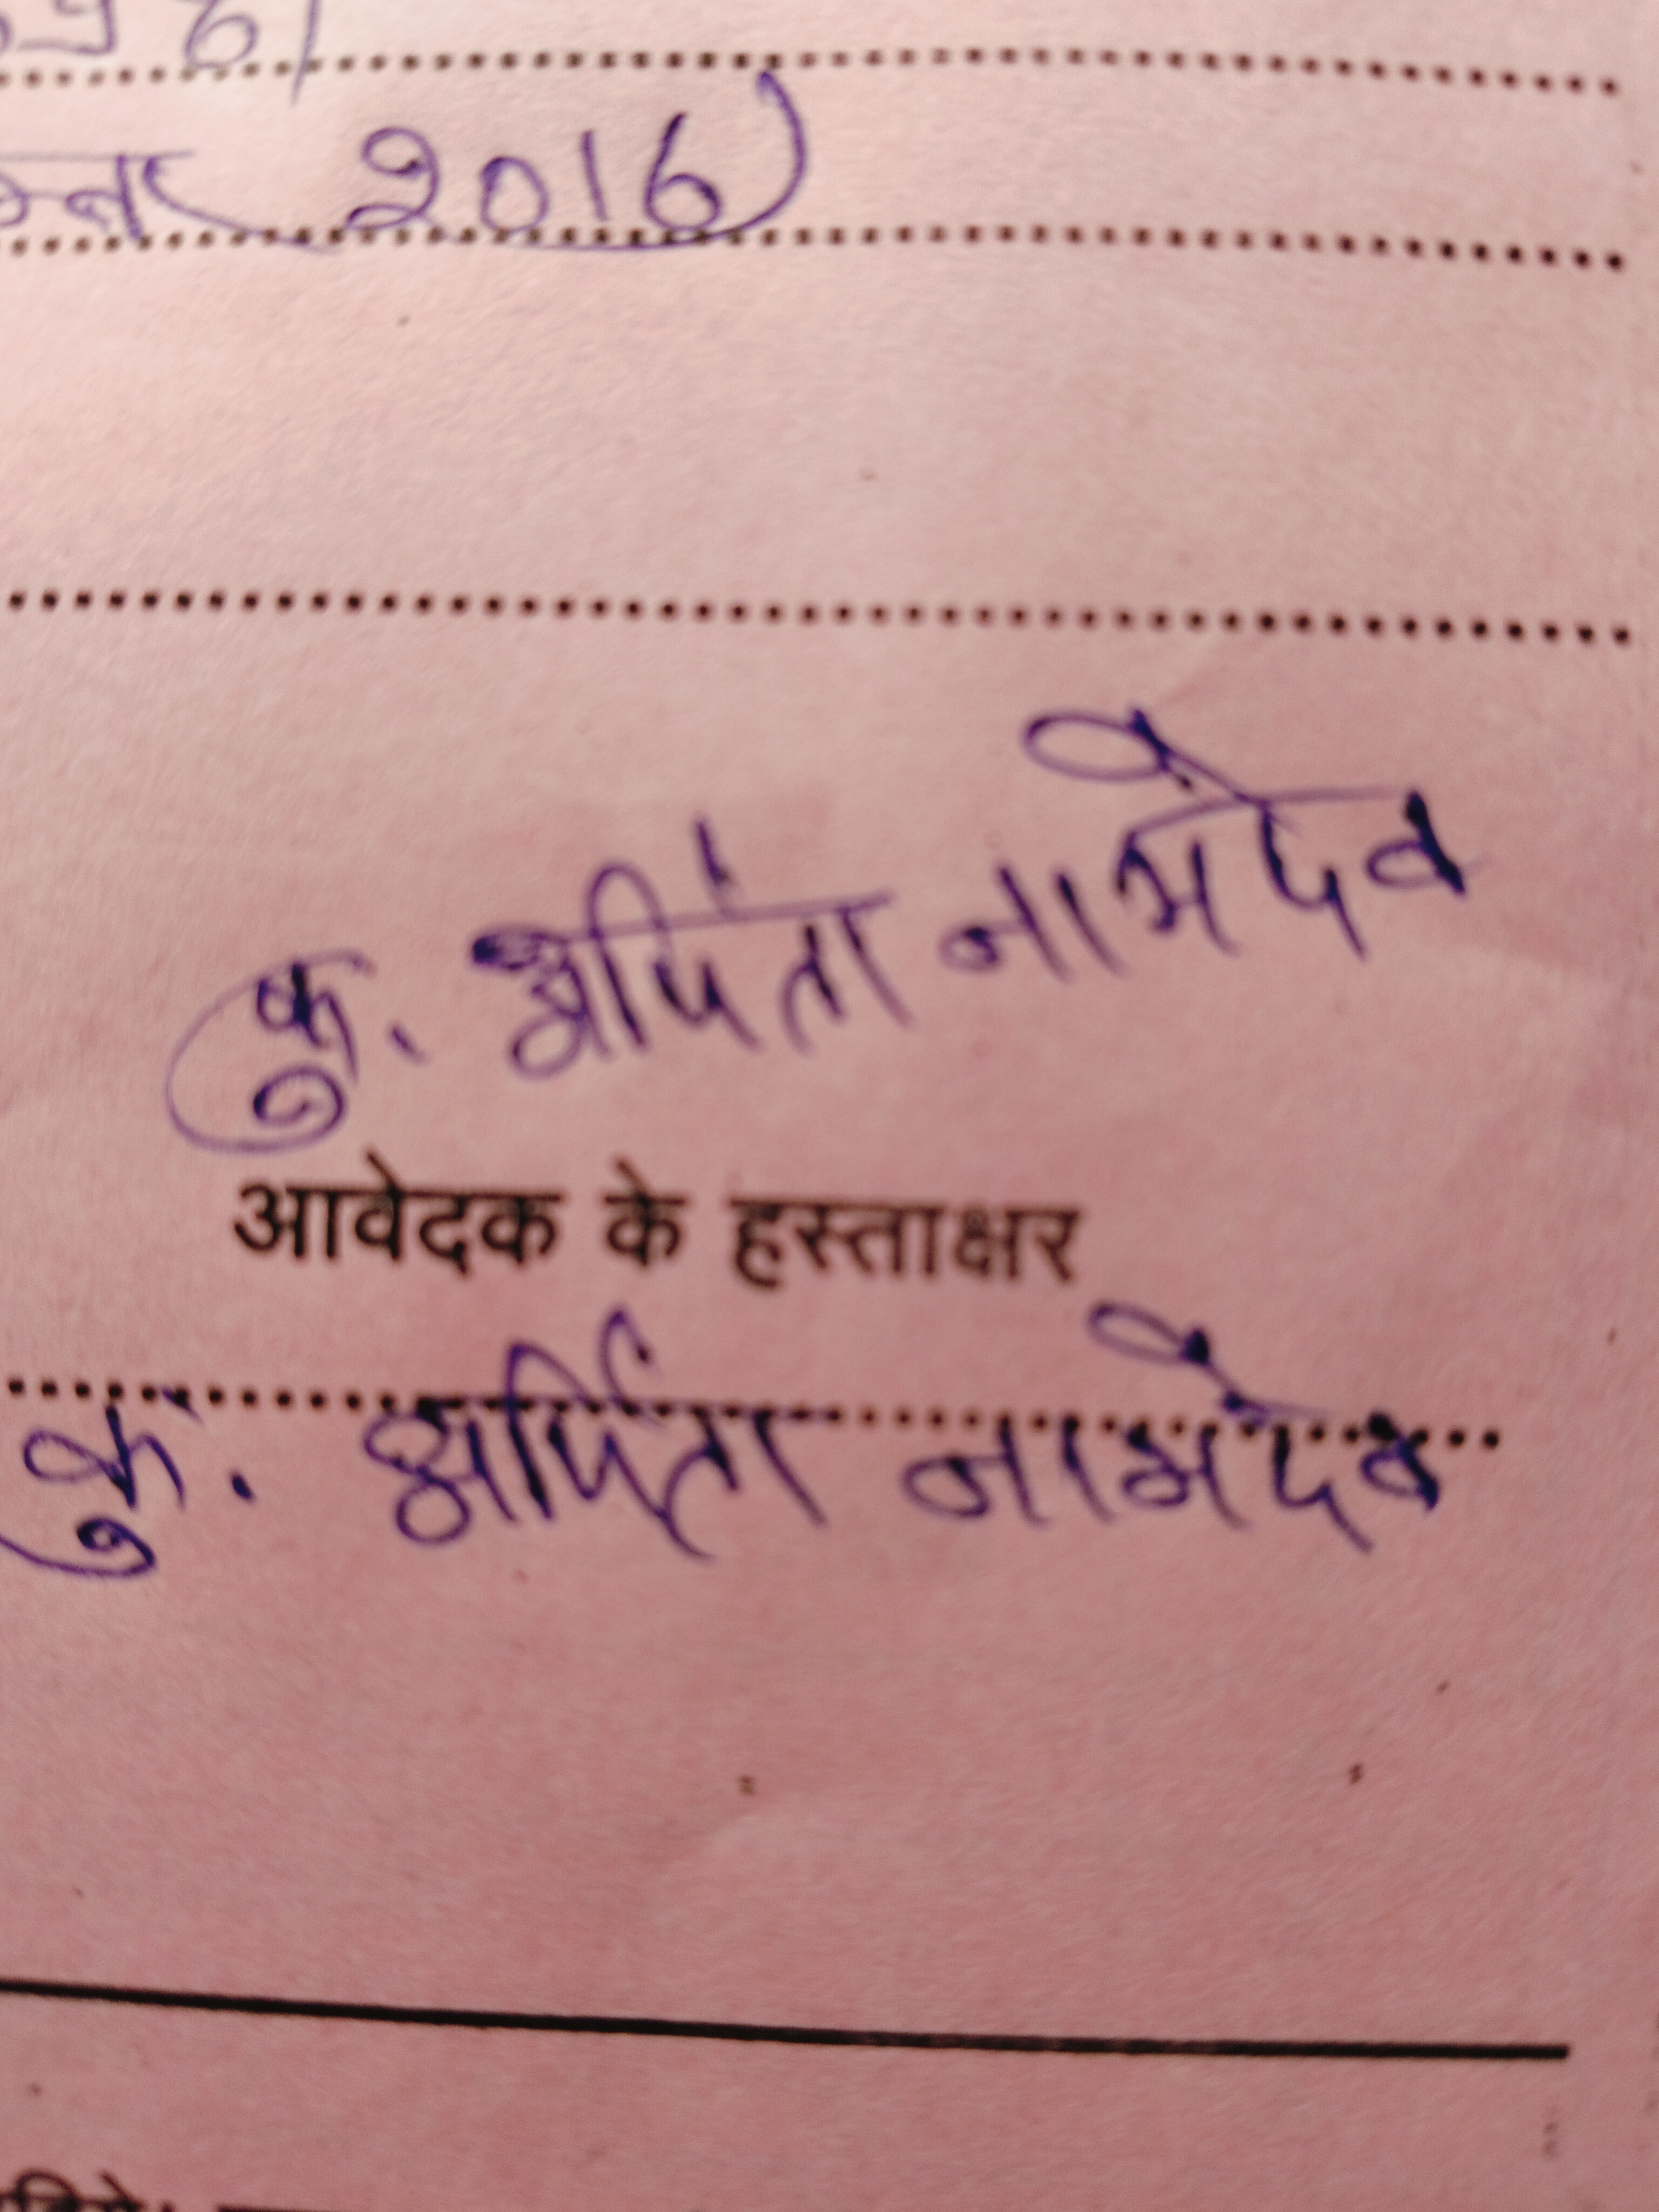 2016
कु. अर्पिता नामदेव
आवेदक के हस्ताक्षर
कु. अर्पिता नामदेव